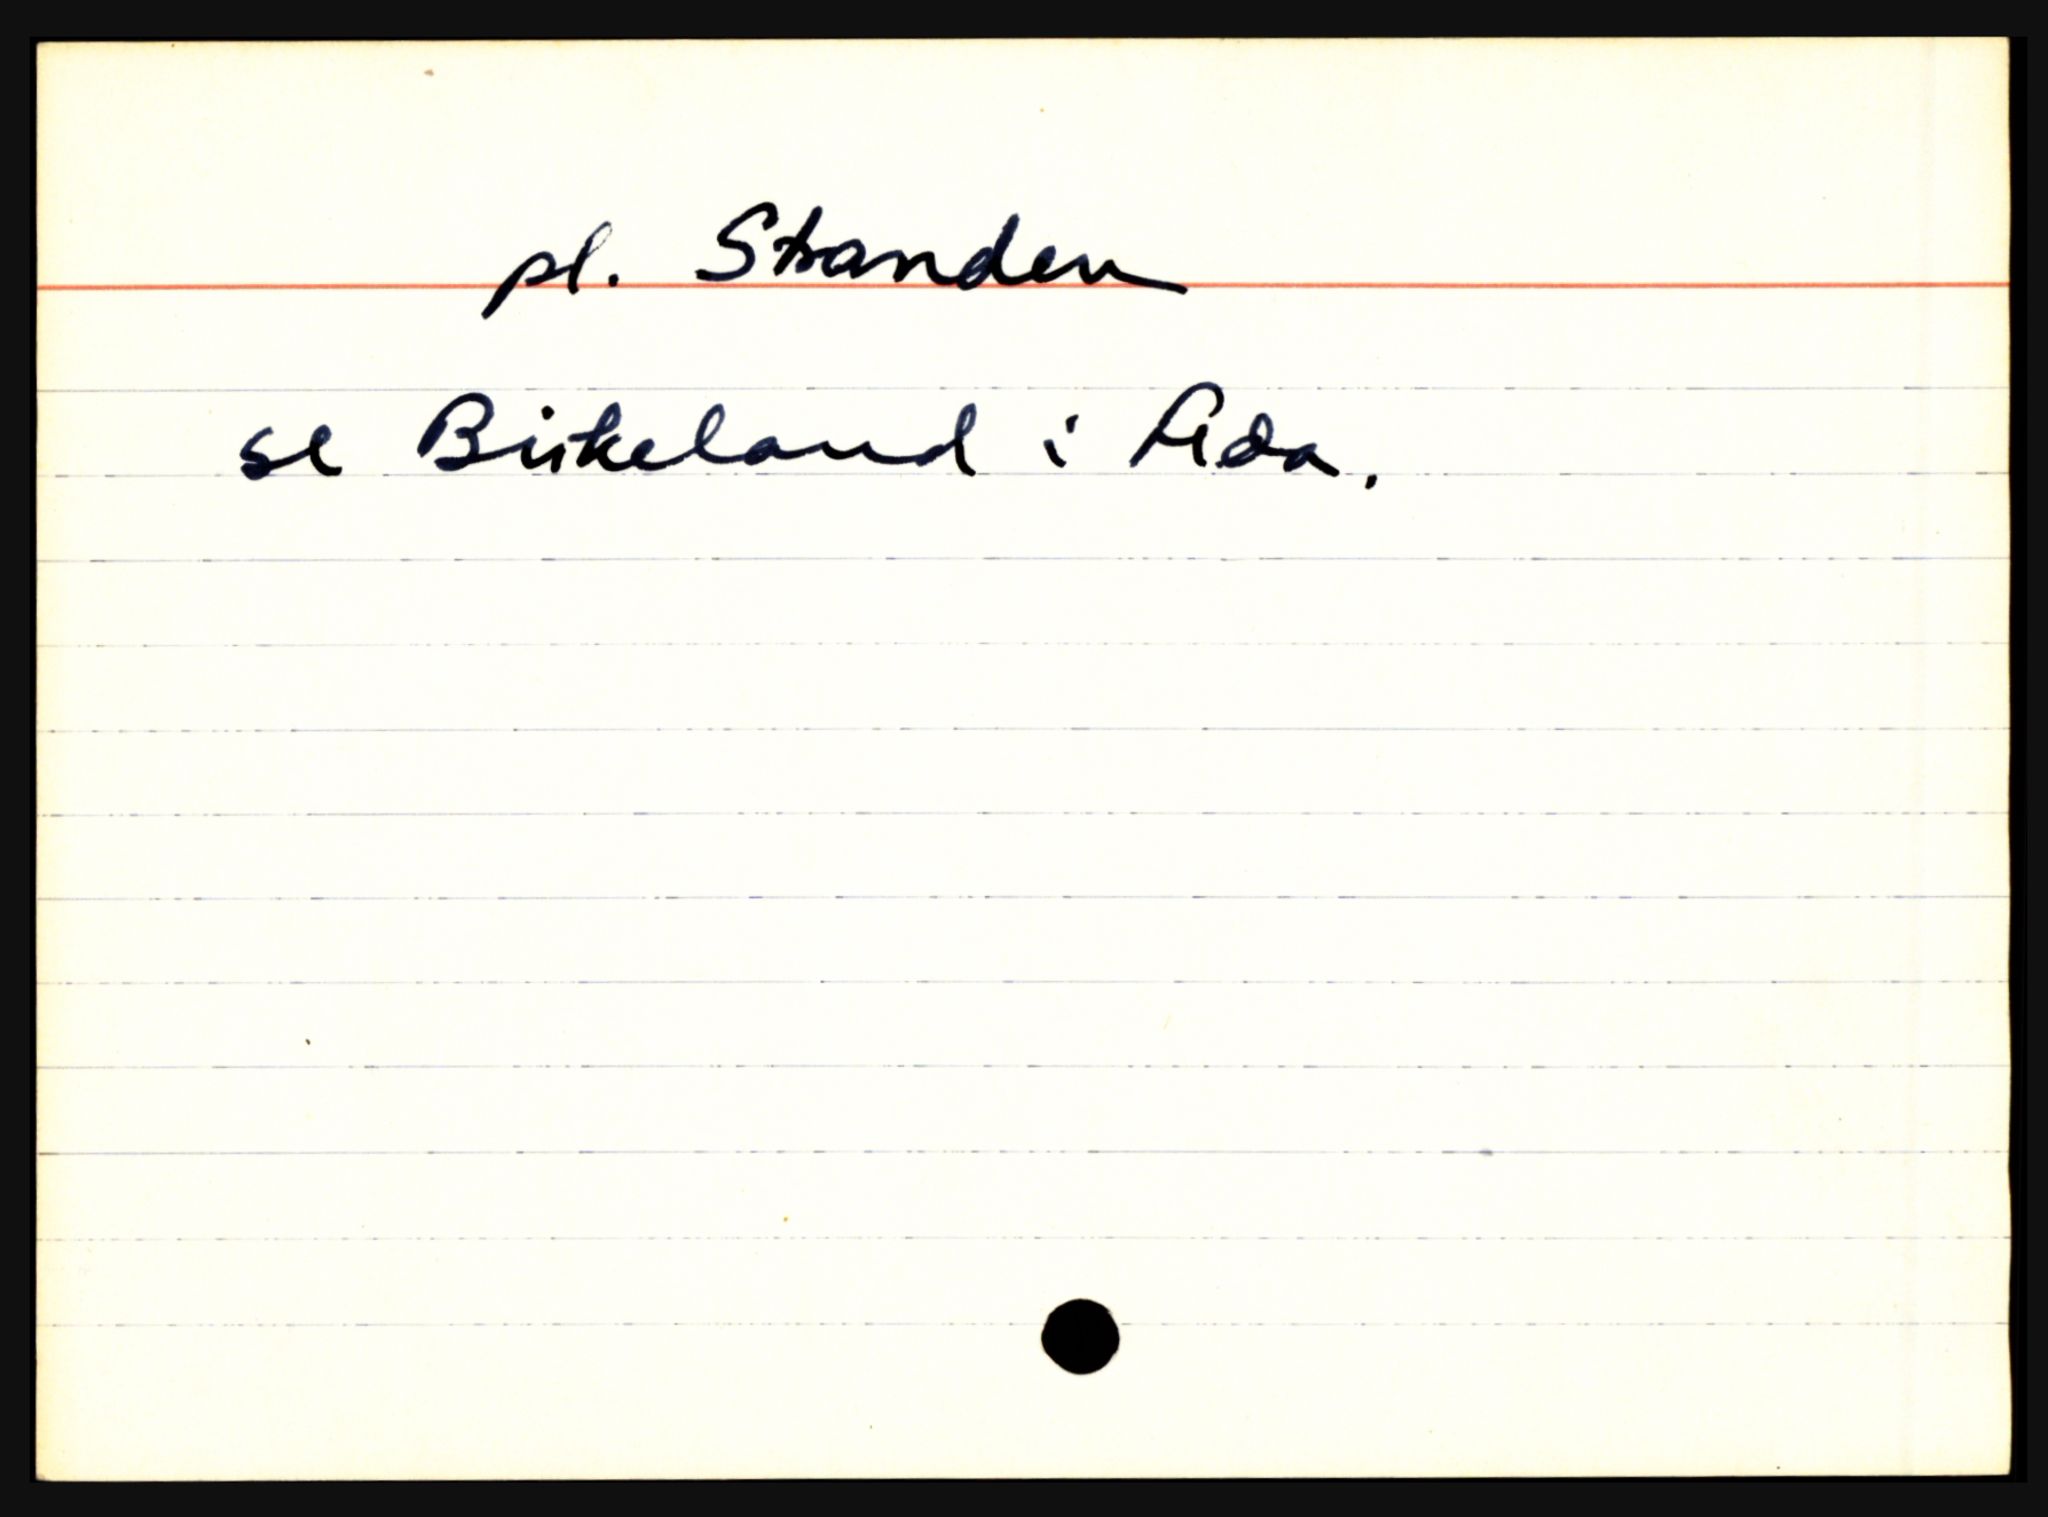 pl. Stranden
se Birkeland i Feda.